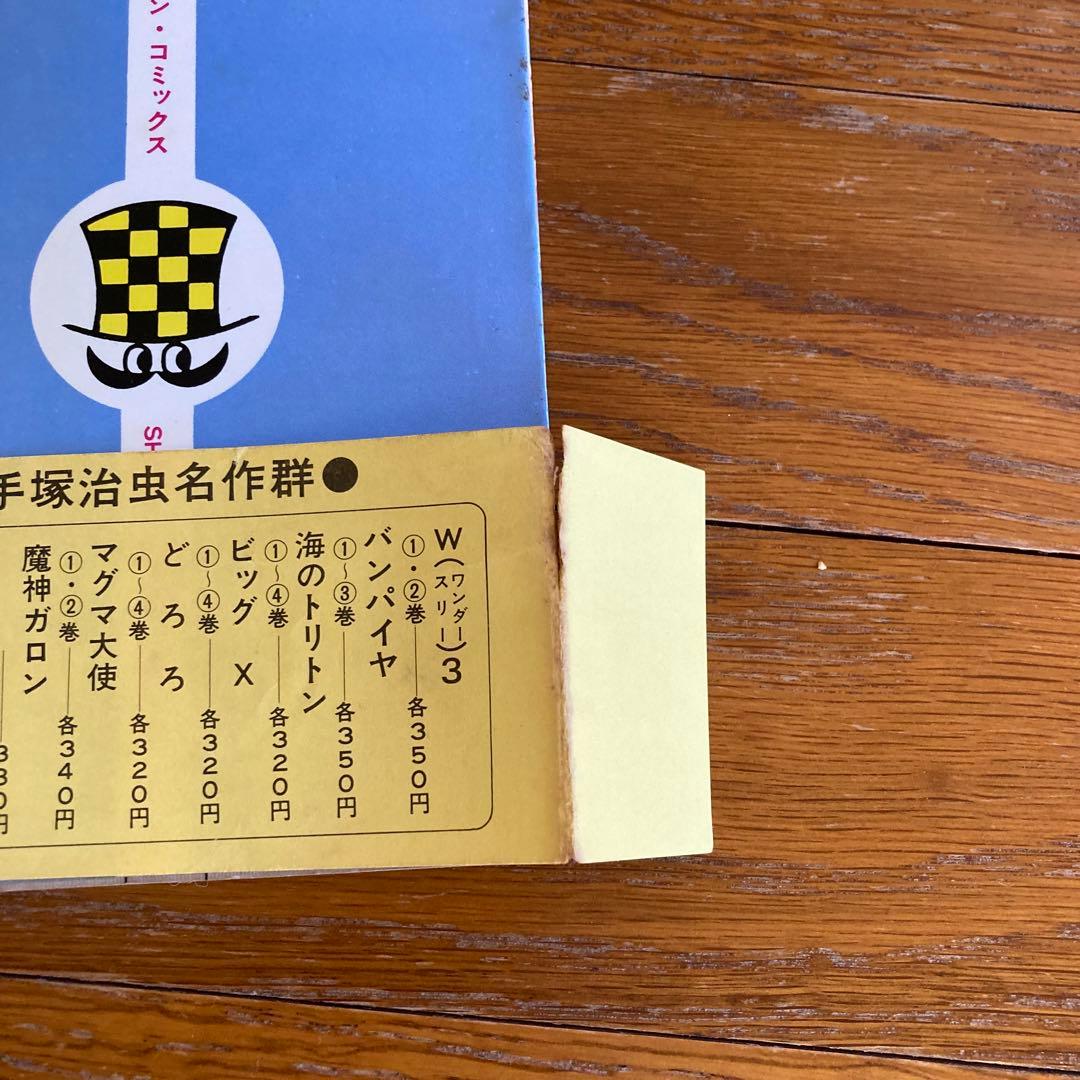 ン・コミックス
手塚治虫名作群●
W(ワンダースリー)3
①・②巻——各350円
バンパイヤ
①〜③巻——各350円
海のトリトン
①〜④巻——各320円
ビッグX
①〜④巻——各320円
どろろ
①〜④巻——各320円
マグマ大使
①・②巻——各340円
魔神ガロン